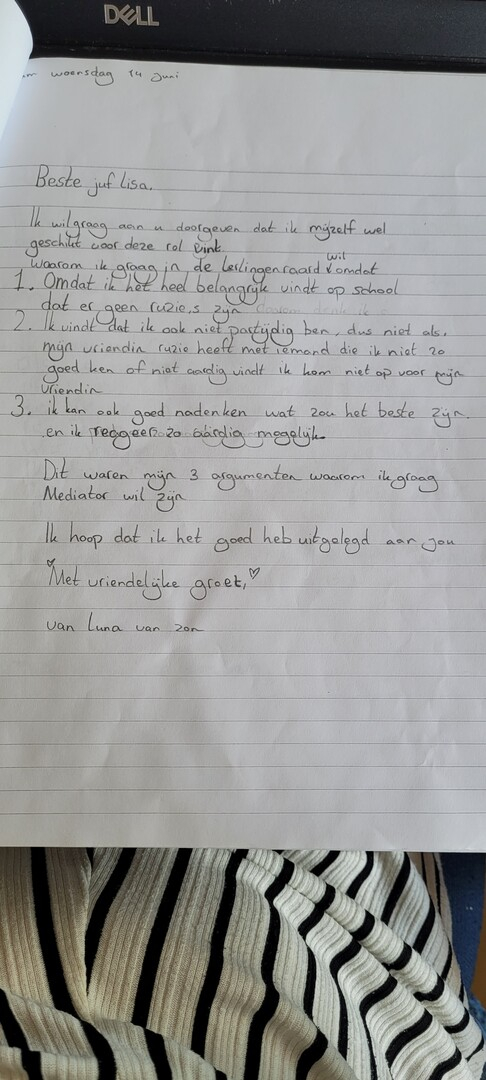 DELL
woensdag 14 Juni
Beste juf Lisa.
Ik wil graag aan u doorgeven dat ik mijzelf wel
geschikt voor deze rol vink.
waarom ik graag in de leslingenraard wil omdat
1. Omdat ik het heel belangrijk vindt op school
dat er geen ruzie,s zijn
2. Ik vindt dat ik ook niet partijdig ben, dus niet als.
mijn vriendin ruzie heeft met iemand die ik niet zo
goed ken of niet aardig vindt ik kom niet op voor mijn
vriendin
3. ik kan ook goed nadenken wat zou het beste zijn.
en ik reageer zo aardig mogelijk
Dit waren mijn 3 argumenten waarom ik graag
Mediator wil zijn
Ik hoop dat ik het goed heb uitgelegd aan jou
♡Met vriendelijke groet,♡
van Luna van zon